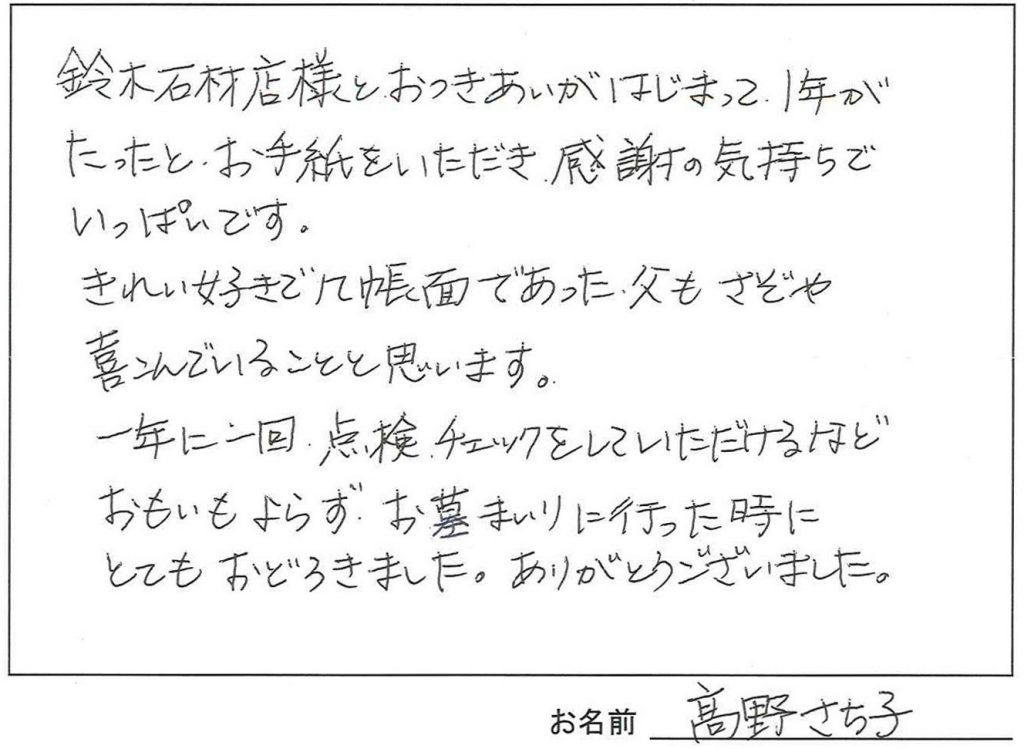 鈴木石材店様と、おつきあいがはじまって、1年が
たったと、お手紙をいただき、感謝の気持ちで
いっぱいです。
きれい好きで几帳面であった、父も さぞや
喜こんでいることと思います。
一年に一回、点検、チェックをしていただけるなど
おもいもよらず、お墓まいりに行った時に
とてもおどろきました。ありがとうございました。
お名前 髙野さち子